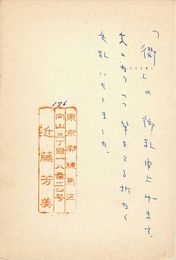 の御礼申上げます。
かかりつつ筆をとる折なく
失礼いたしました。
176
東京都練馬区
向山三丁目一八番二〇号
近藤芳美